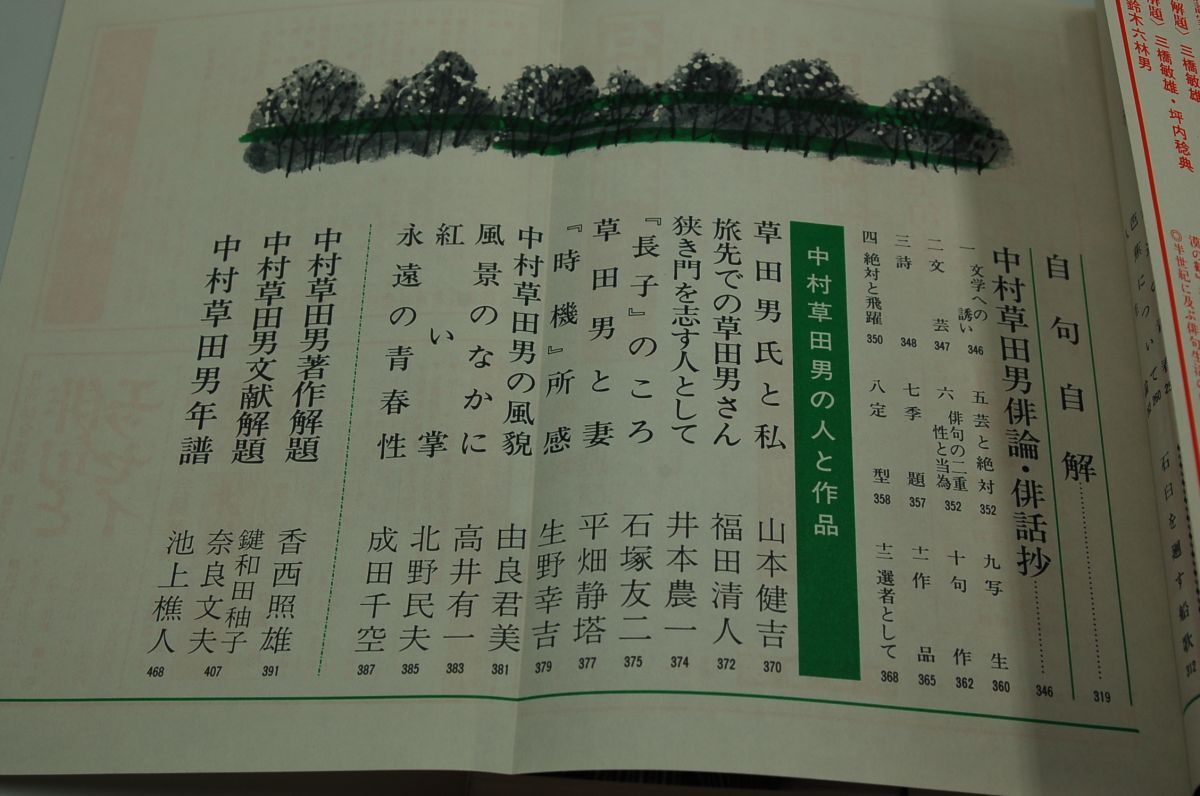 三橋敏雄
解題）三橋敏雄・坪内稔典
鈴木六林男
◎半世紀に及ぶ俳句
石臼を廻す船歌 312
自句自解 319
中村草田男俳論・俳話抄 346
一 文学への誘い 346
二 文芸 347
三 詩 348
四 絶対と飛躍 350
五 芸と絶対 352
六 俳句の二重性と当為 352
七 季題 357
八 定型 358
九 写生 360
十 句作 362
十一 作品 365
十二 選者として 368
中村草田男の人と作品
草田男氏と私 山本健吉 370
旅先での草田男さん 福田清人 372
狭き門を志す人として 井本農一 374
『長子』のころ 石塚友二 375
草田男と妻 平畑静塔 377
『時機』所感 生野幸吉 379
中村草田男の風貌 由良君美 381
風景のなかに 高井有一 383
紅い掌 北野民夫 385
永遠の青春性 成田千空 387
中村草田男著作解題 香西照雄 391
中村草田男文献解題 鍵和田秞子 奈良文夫 407
中村草田男年譜 池上樵人 468